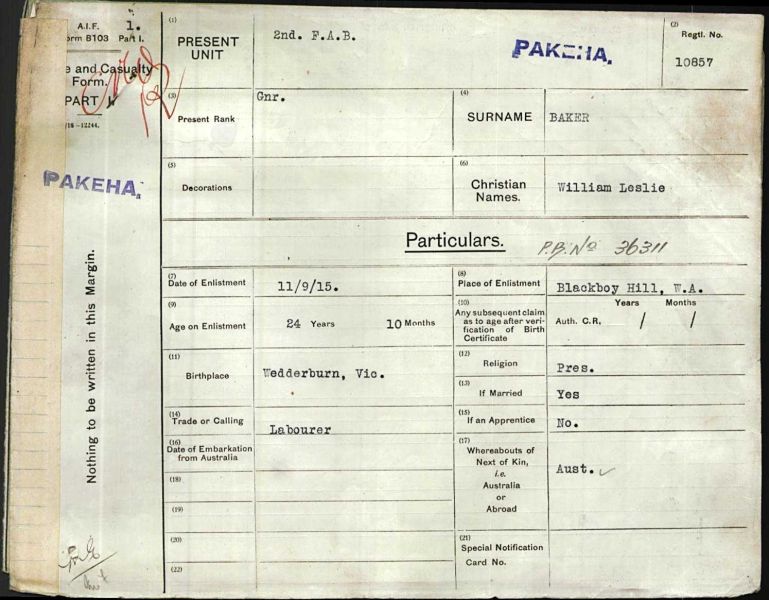 A.I.F. 1.
orm B103 Part I.
e and Casualty
Form.
PART I.
/16-12244.
PAKEHA.
Nothing to be written in this Margin.
(1)
PRESENT
UNIT
2nd. F.A.B.
PAKEHA.
(2)
Regtl. No.
10857
(3)
Present Rank
Gnr.
(4)
SURNAME
BAKER
(5)
Decorations
(6)
Christian
Names.
William Leslie
Particulars.
P.B. No 36311
(7)
Date of Enlistment
11/9/15.
(8)
Place of Enlistment
Blackboy Hill, W.A.
(9)
Age on Enlistment
24 Years 10 Months
(10)
Any subsequent claim
as to age after veri-
fication of Birth
Certificate
Years Months
Auth. C.R, / /
(11)
Birthplace
Wedderburn, Vic.
(12)
Religion
Pres.
(13)
If Married
Yes
(14)
Trade or Calling
Labourer
(15)
If an Apprentice
No.
(16)
Date of Embarkation
from Australia
(17)
Whereabouts of
Next of Kin,
i.e.
Australia
or
Abroad
Aust.
(18)
(19)
(20)
(21)
Special Notification
Card No.
(22)